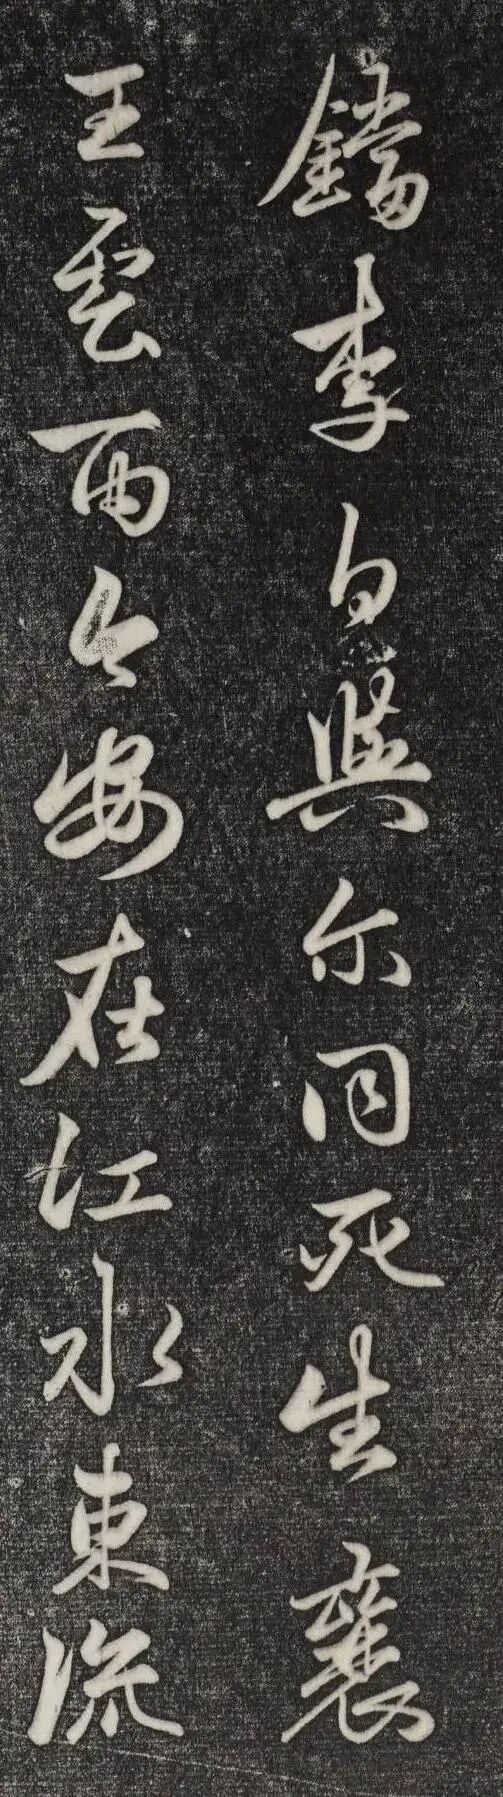 鐺李白與尔同死生襄
王雲雨今安在江水東流